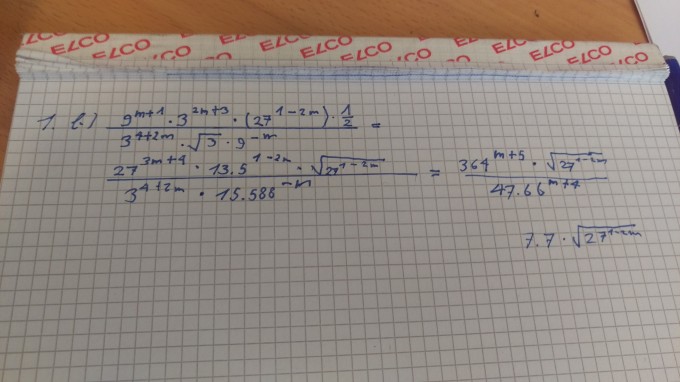 ELCO ELCO ELCO ELCO ELCO ELCO
1. b.) 9^{m+1} · 3^{2m+3} · (27^{1-2m}) · 1/2 / 3^{4+2m} · √3 · 9^{-m} =
27^{3m+4} · 13.5^{1-2m} · √27^{1-2m} / 3^{4+2m} · 15.588^{-m} = 364^{m+5} · √27^{1-2m} / 47.66^{m+4}
7.7 · √27^{1-2m}